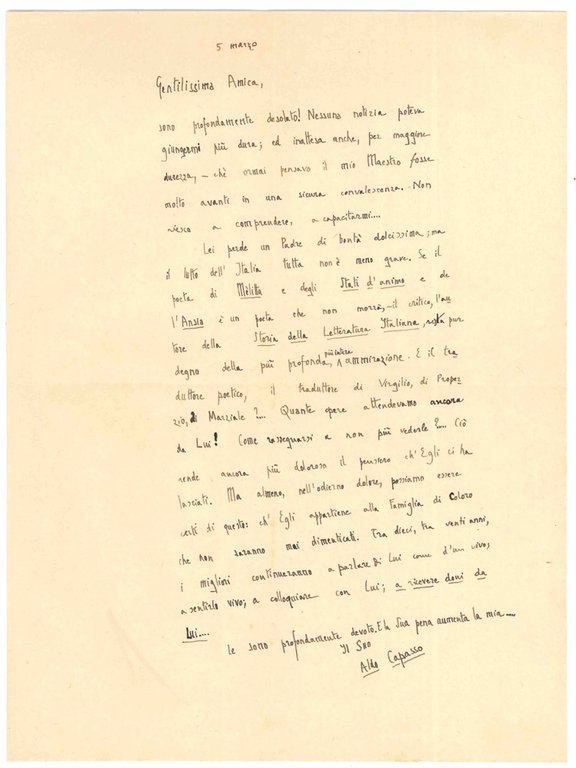 5 marzo
Gentilissima Amica,
sono profondamente desolato! Nessuna notizia poteva
giungermi più dura; ed inattesa anche, per maggiore
durezza, – chè ormai pensavo il mio Maestro fosse
molto avanti in una sicura convalescenza. Non
riesco a comprendere, a capacitarmi....
Lei perde un Padre di bontà dolcissima; ma
il lutto dell' Italia tutta non è meno grave. Se il
poeta di Mèlitta e degli Stati d'animo e de
l'Ansia è un poeta che non morrà, – il critico, l'au
tore della Storia della Letteratura Italiana, resta pur
degno della più profonda, più intera ammirazione. E il tra
duttore poetico, il traduttore di Virgilio, di Proper
zio, di Marziale?.... Quante opere attendevamo ancora
da Lui! Come rassegnarsi a non più vederle?.... Ciò
rende ancora più doloroso il pensiero ch' Egli ci ha
lasciati. Ma almeno, nell'odierno dolore, possiamo essere
certi di questo: ch' Egli appartiene alla Famiglia di Coloro
che non saranno mai dimenticati. Tra dieci, tra venti anni,
i migliori continueranno a parlare di Lui come d'un vivo,
a sentirlo vivo; a colloquiare con Lui; a ricevere doni da
Lui....
Le sono profondamente devoto. E la Sua pena aumenta la mia....
Il Suo
Aldo Capasso